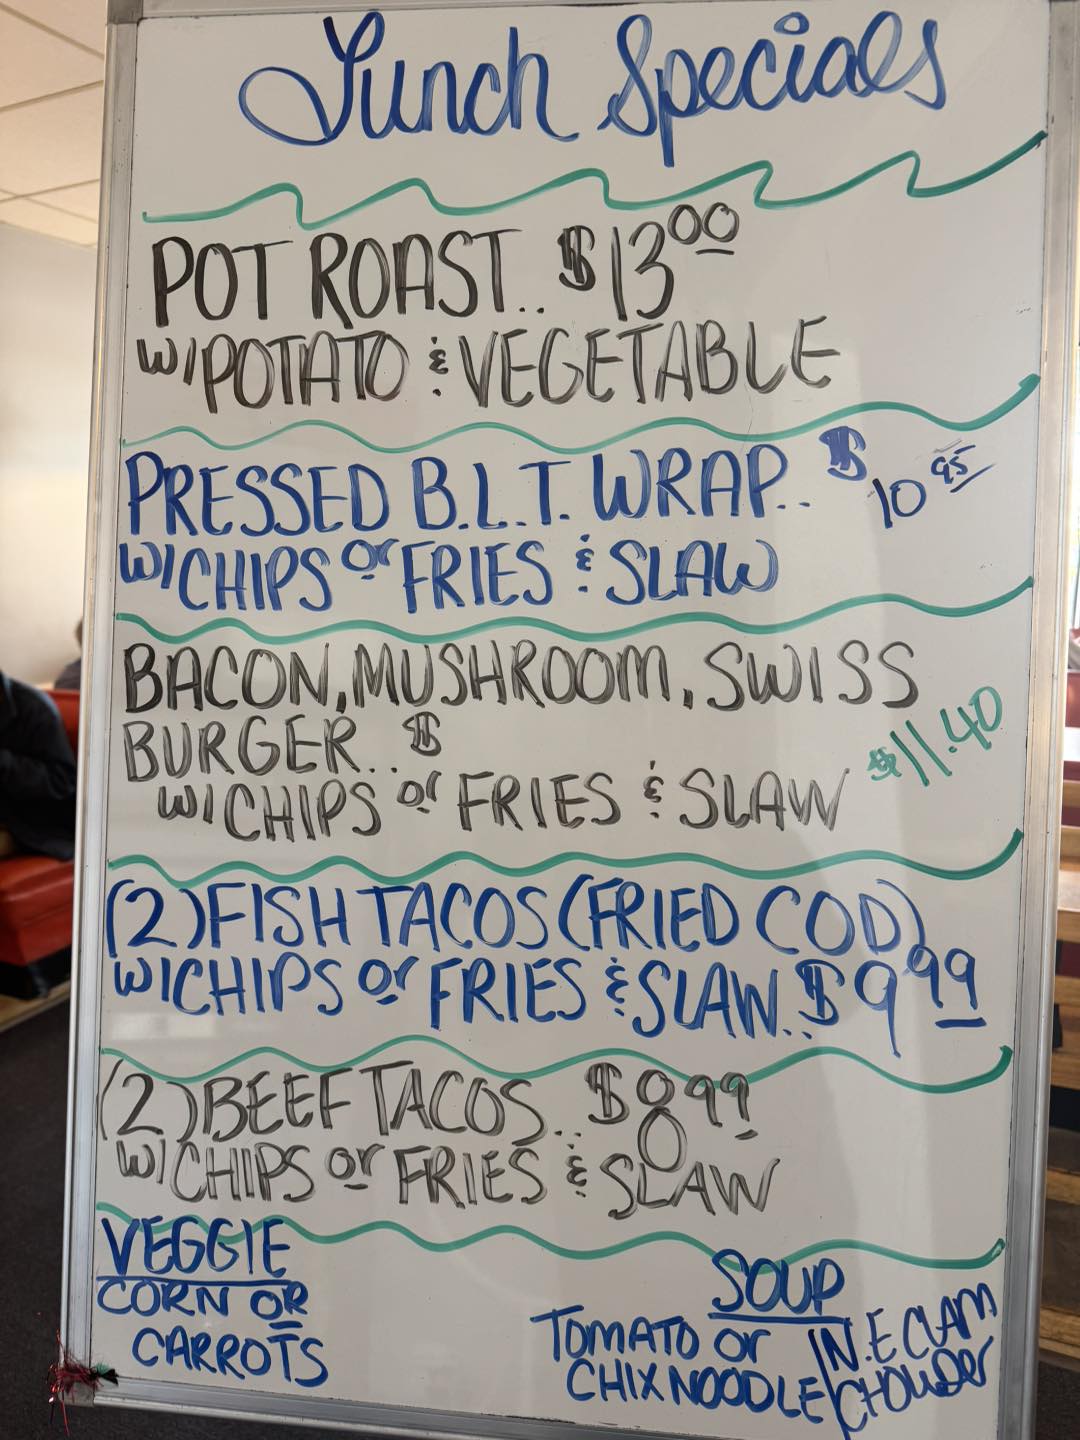 Lunch Specials
POT ROAST.. $13.00
W/POTATO & VEGETABLE
PRESSED B.L.T. WRAP.. $10.95
W/CHIPS or FRIES & SLAW
BACON, MUSHROOM, SWISS
BURGER... $
W/CHIPS or FRIES & SLAW $11.40
(2) FISH TACOS (FRIED COD)
W/CHIPS or FRIES & SLAW.. $9.99
(2) BEEF TACOS... $8.99
W/CHIPS or FRIES & SLAW
VEGGIE
CORN OR
CARROTS
SOUP
TOMATO or
CHIX NOODLE/
N.E CLAM
CHOWDER